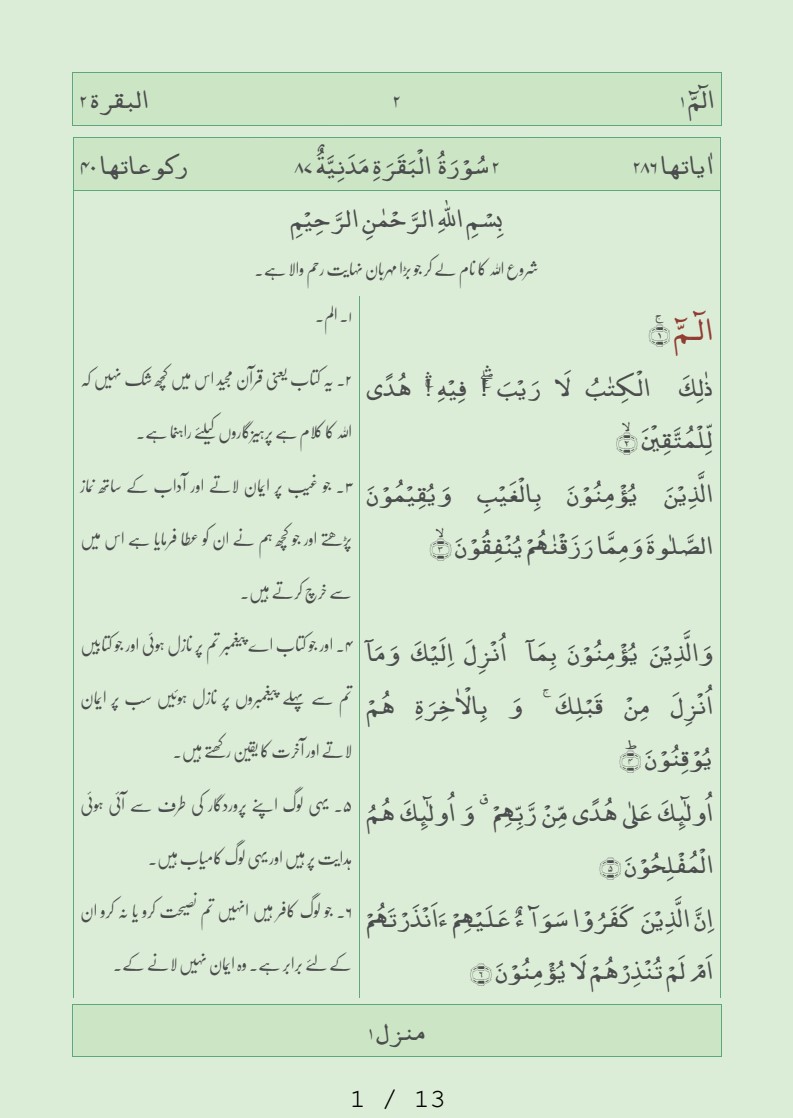 الٓمّٓ ۱ ۲ البقرة ۲
اٰیاتها ۲۸۶ ۲ سُوْرَةُ الْبَقَرَةِ مَدَنِیَّةٌ ۸۷ رکوعاتها ۴۰
بِسْمِ اللّٰهِ الرَّحْمٰنِ الرَّحِیْمِ
شروع اللہ کا نام لے کر جو بڑا مہربان نہایت رحم والا ہے۔
الٓمّٓ ۚ﴿۱﴾
ذٰلِكَ الْكِتٰبُ لَا رَیْبَ ۛۖۚ فِیْهِ ۛۚ هُدًی
لِّلْمُتَّقِیْنَ ۙ﴿۲﴾
الَّذِیْنَ یُؤْمِنُوْنَ بِالْغَیْبِ وَ یُقِیْمُوْنَ
الصَّلٰوةَ وَ مِمَّا رَزَقْنٰهُمْ یُنْفِقُوْنَ ۙ﴿۳﴾
وَالَّذِیْنَ یُؤْمِنُوْنَ بِمَاۤ اُنْزِلَ اِلَیْكَ وَ مَاۤ
اُنْزِلَ مِنْ قَبْلِكَ ۚ وَ بِالْاٰخِرَةِ هُمْ
یُوْقِنُوْنَ ؕ﴿۴﴾
اُولٰٓئِكَ عَلٰی هُدًی مِّنْ رَّبِّهِمْ ۗ وَ اُولٰٓئِكَ هُمُ
الْمُفْلِحُوْنَ ﴿۵﴾
اِنَّ الَّذِیْنَ كَفَرُوْا سَوَآءٌ عَلَیْهِمْ ءَاَنْذَرْتَهُمْ
اَمْ لَمْ تُنْذِرْهُمْ لَا یُؤْمِنُوْنَ ﴿۶﴾
۱۔ الم۔
۲۔ یہ کتاب یعنی قرآن مجید اس میں کچھ شک نہیں کہ
اللہ کا کلام ہے پرہیزگاروں کیلئے راہنما ہے۔
۳۔ جو غیب پر ایمان لاتے اور آداب کے ساتھ نماز
پڑھتے اور جو کچھ ہم نے ان کو عطا فرمایا ہے اس میں
سے خرچ کرتے ہیں۔
۴۔ اور جو کتاب اے پیغمبر تم پر نازل ہوئی اور جو کتابیں
تم سے پہلے پیغمبروں پر نازل ہوئیں سب پر ایمان
لاتے اور آخرت کا یقین رکھتے ہیں۔
۵۔ یہی لوگ اپنے پروردگار کی طرف سے آئی ہوئی
ہدایت پر ہیں اور یہی لوگ کامیاب ہیں۔
۶۔ جو لوگ کافر ہیں انہیں تم نصیحت کرو یا نہ کرو ان
کے لئے برابر ہے۔ وہ ایمان نہیں لانے کے۔
منزل ۱
1 / 13